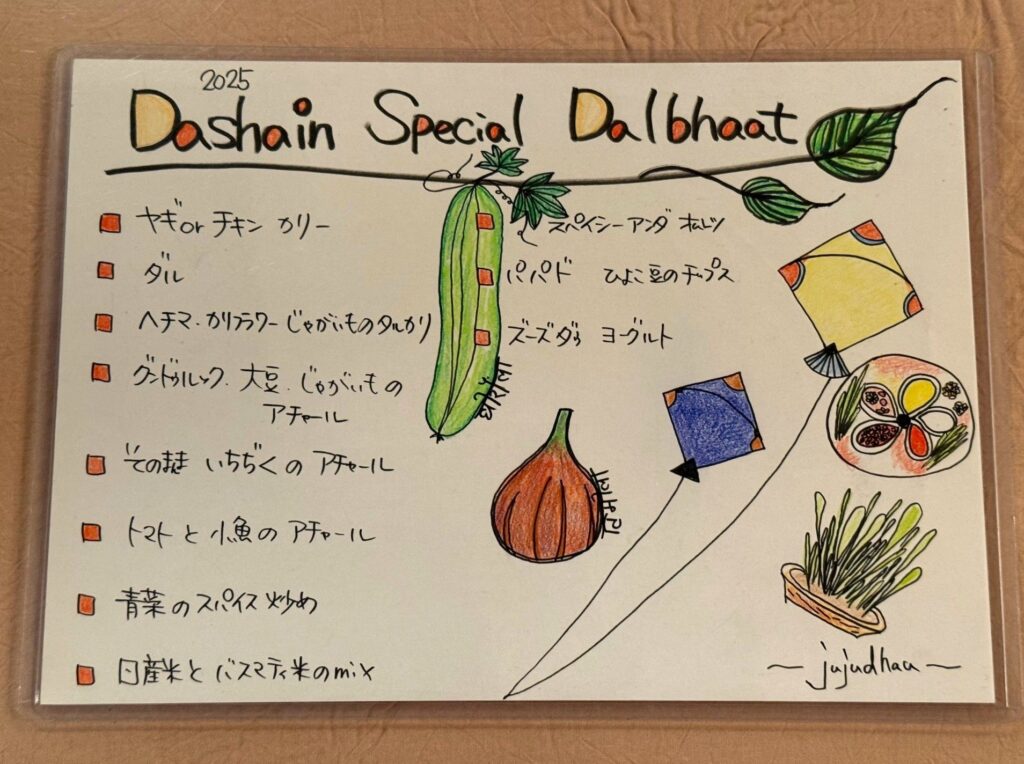 2025
Dashain Special Dalbhaat
ヤギor チキン カリー
ダル
ヘチマ・カリフラワー・じゃがいものタルカリ
グンドゥルック・大豆・じゃがいもの
アチャール
そのまま いちぢくの アチャール
トマト と 小魚の アチャール
青菜のスパイス炒め
日産米と バスマティ米のmix
スパイシーアンダ オムレツ
パパド ひよこ豆のチップス
ズーズダゥ ヨーグルト
〜 jujudhau 〜